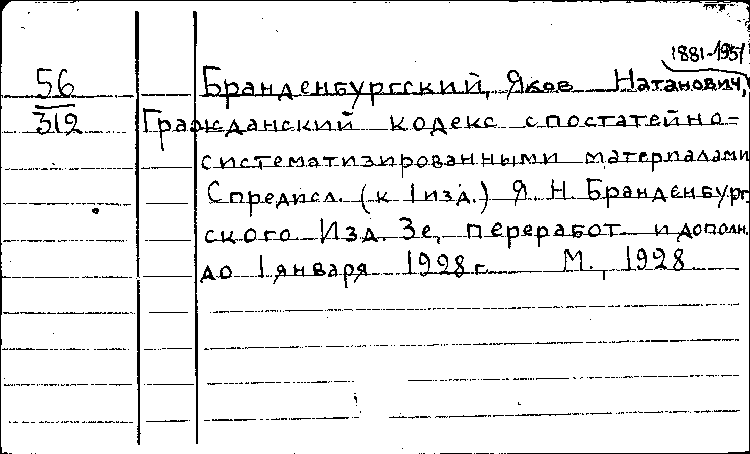 1881-1951
56 Бранденбургский, Яков Натанович,
312 Гражданский кодекс с постатейно-
систематизированными материалами
С предисл. (к 1 изд.) Я. Н. Бранденбург-
ского Изд. 3е, переработ. и дополн.
до 1 января 1928 г. М., 1928